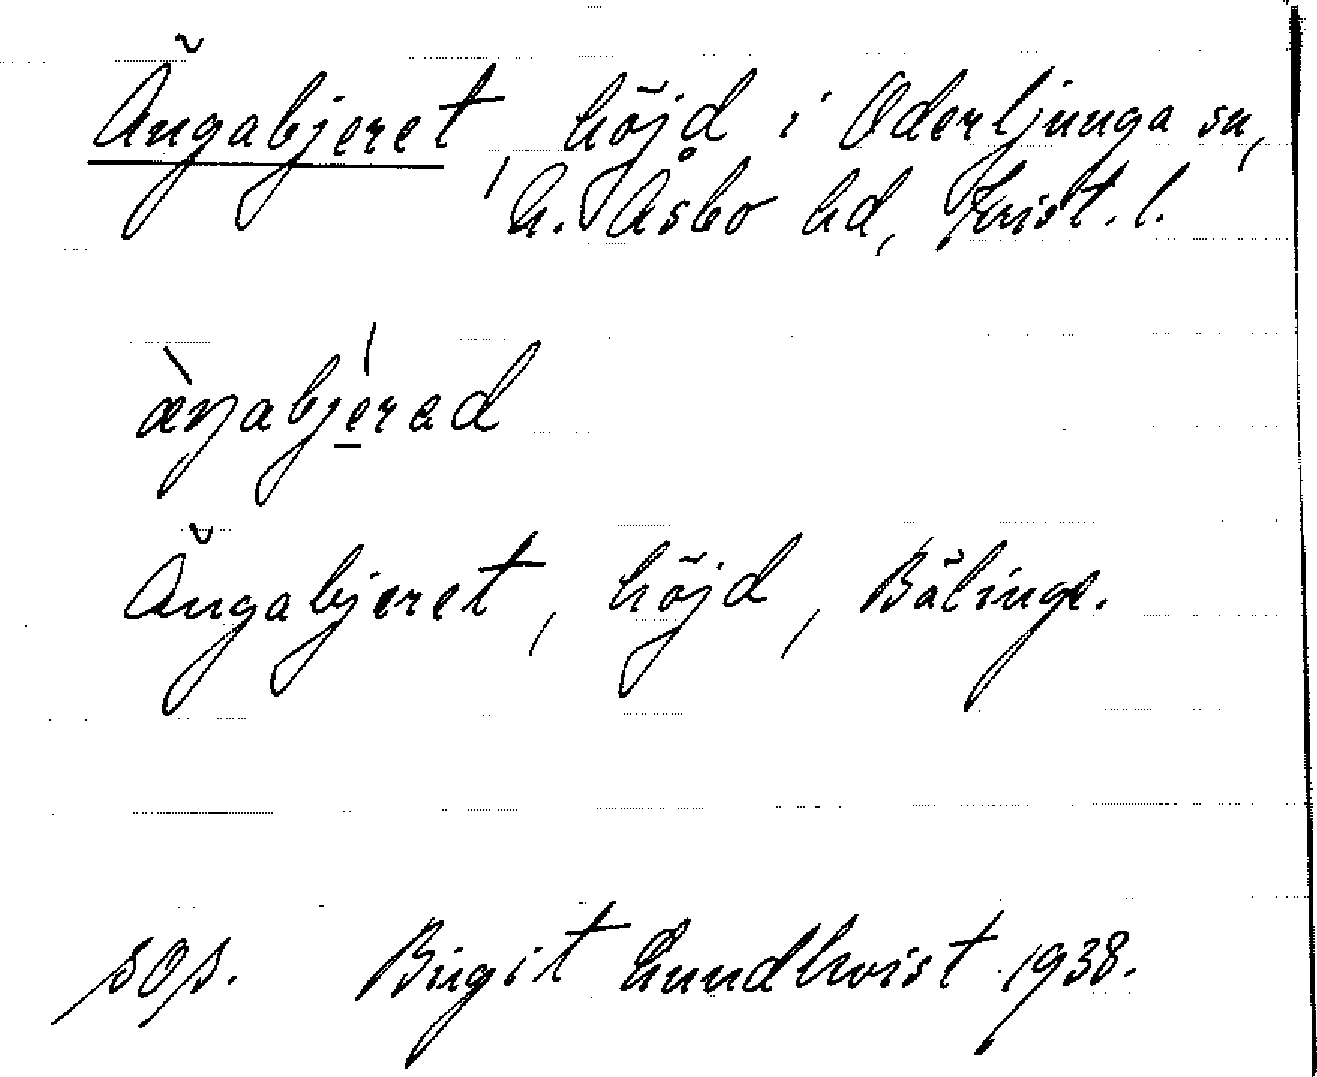 Ängabjeret, höjd i Oderljunga sn,
N. Åsbo hd, Krist. l.
æ̀ŋabjérad
Ängabjeret, höjd, Bälinge.
sop. Birgit Lundkvist 1938.